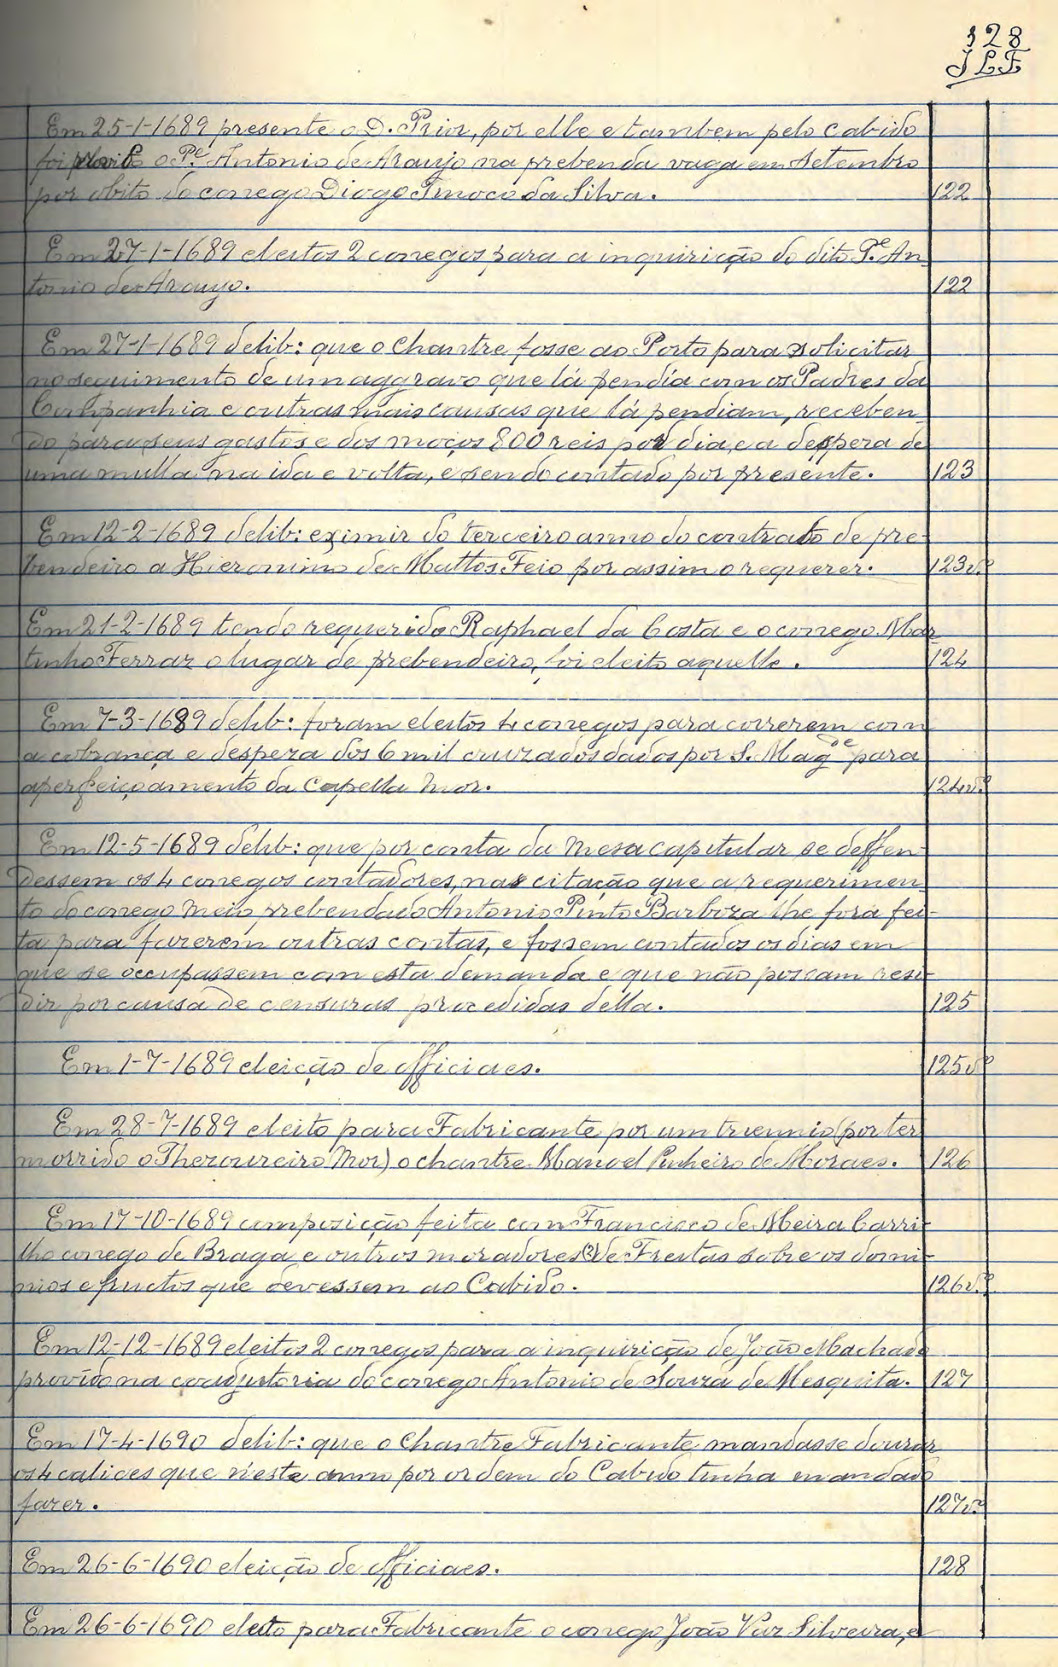 128
J L F
Em 25-1-1689 presente o D. Prior, por elle e tambem pelo Cabido
foi provido o P.e Antonio de Araujo na prebenda vaga em setembro
por obito do conego Diogo Tinoco da Silva. 122
Em 27-1-1689 eleitos 2 conegos para a inquirição do dito P.e An-
tonio de Araujo. 122
Em 27-1-1689 delib: que o Chantre fosse ao Porto para solicitar
no seguimento de um aggravo que lá pendia com os Padres da
Companhia e outras mais causas que lá pendiam, receben-
do para seus gastos e dos moços 800 reis por dia, e a despeza de
uma mulla na ida e volta, e sendo contado por presente. 123
Em 12-2-1689 delib: eximir do terceiro anno do contrato de pre-
bendeiro a Hieronimo de Mattos Feio por assim o requerer. 123v.º
Em 21-2-1689 tendo requerido Raphael da Costa e o conego Mar-
tinho Ferraz o lugar de prebendeiro, foi eleito aquelle. 124
Em 7-3-1689 delib: foram eleitos 4 conegos para correrem com
a cobrança e despeza dos 6 mil cruzados dados por S. Mag.de para
aperfeiçoamento da Capella Mor. 124v.º
Em 12-5-1689 delib: que por conta da Mesa capitular se deffen-
dessem os 4 conegos contadores, na citação que a requerimen-
to do conego meio prebendado Antonio Pinto Barboza lhe fora fei-
ta para fazerem outras contas, e fossem contados os dias em
que se occupassem com esta demanda e que não possam resi-
dir por causa de censuras procedidas della. 125
Em 1-7-1689 eleição de officiaes. 125v.º
Em 28-7-1689 eleito para Fabricante por um triennio (por ter
morrido o Thezoureiro Mor) o chantre Manoel Pinheiro de Moraes. 126
Em 17-10-1689 composição feita com Francisco de Meira Carri-
lho conego de Braga e outros moradores (?) de Freitas sobre os domi-
nios e fructos que devessem ao Cabido. 126v.º
Em 12-12-1689 eleitos 2 conegos para a inquirição de João Machado
provido na coadjutoria do conego Antonio de Souza de Mesquita. 127
Em 17-4-1690 delib: que o Chantre Fabricante mandasse dourar
os 4 calices que n'este anno por ordem do Cabido tinha mandado
fazer. 127v.º
Em 26-6-1690 eleição de officiaes. 128
Em 26-6-1690 eleito para Fabricante o conego João Vaz Silveira, e